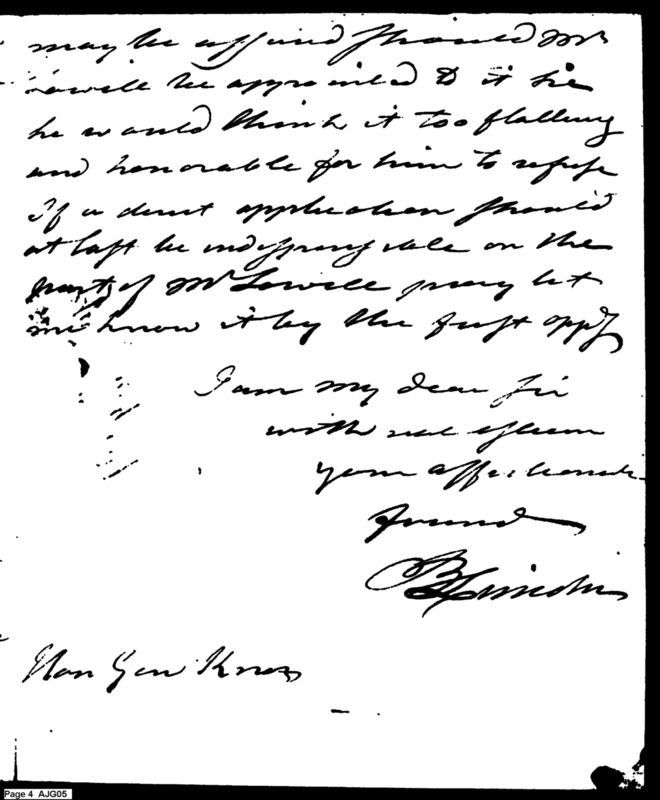 may be assured should Mr
Lowell be appointed to it
he would think it too flattering
and honorable for him to refuse
If a direct application should
at last be indispensable on the
part of Mr Lowell pray let
me know it by the first oppy
I am my dear sir
with real esteem
your affectionate
friend
B Lincoln
Hon Gen Knox
Page 4 AJG05